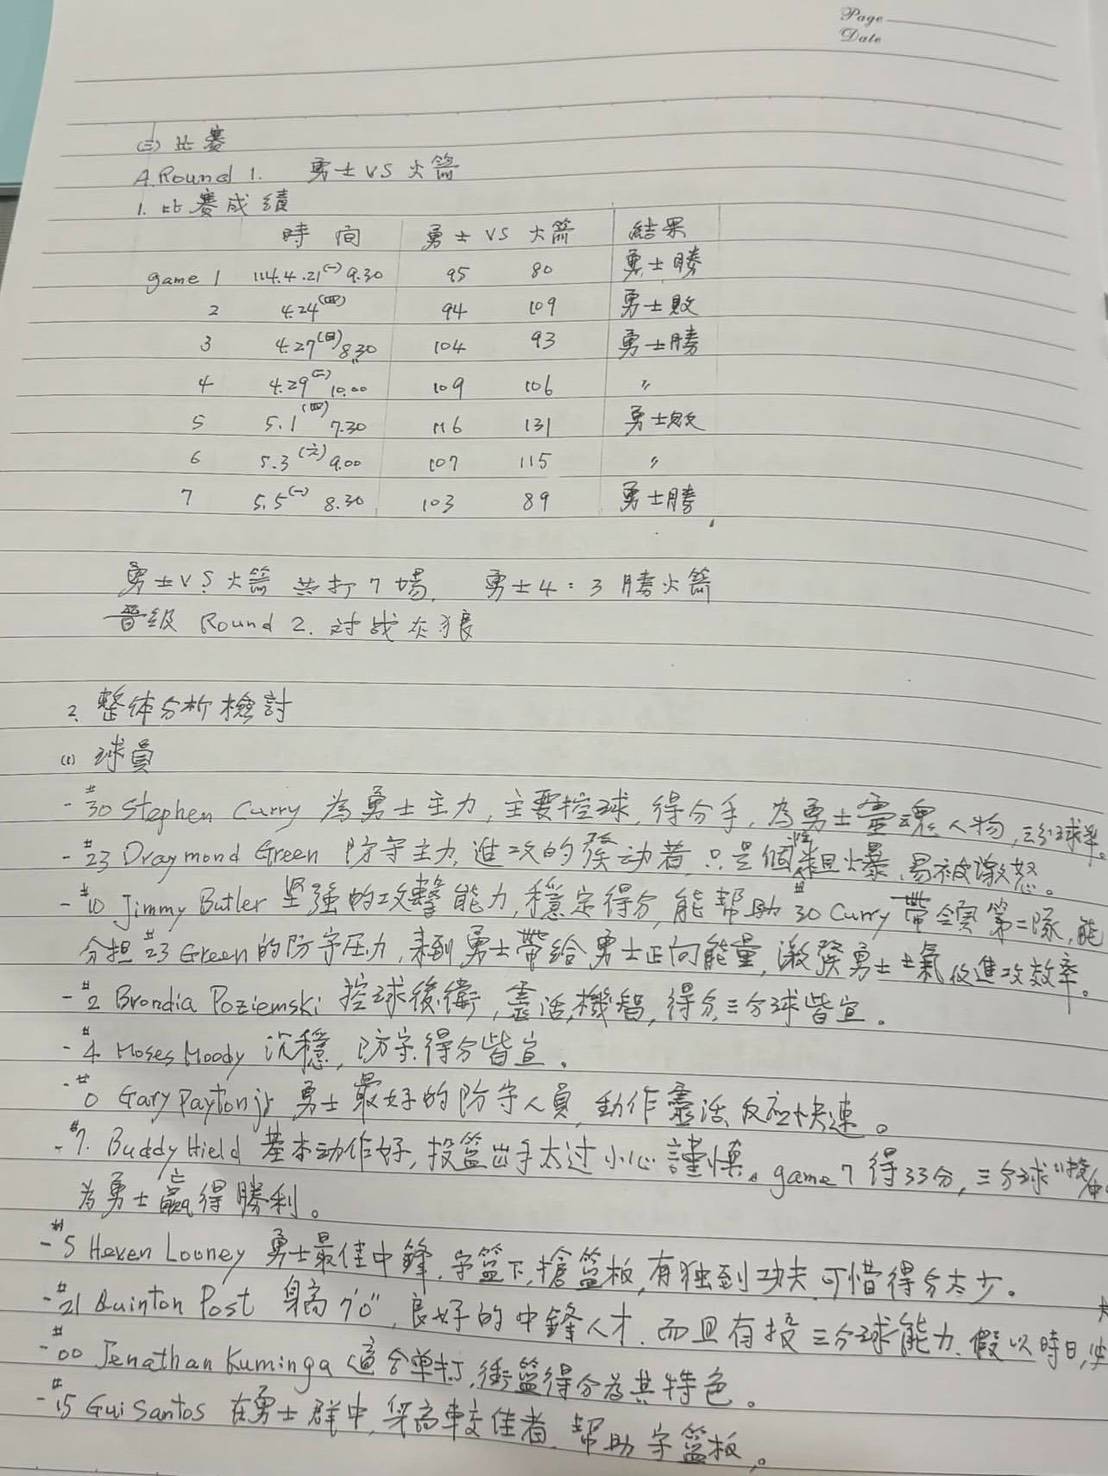 Page
Date
(三) 比賽
A.Round 1. 勇士 VS 火箭
1. 比賽成績
時間 勇士 VS 火箭 結果
game 1 114.4.21(一) 9.30 95 80 勇士勝
2 4.24(四) 94 109 勇士敗
3 4.27(日) 8.30 104 93 勇士勝
4 4.29(二) 10.00 109 106 〃
5 5.1(四) 7.30 116 131 勇士敗
6 5.3(六) 9.00 107 115 〃
7 5.5(一) 8.30 103 89 勇士勝
勇士 VS 火箭 共打7場, 勇士4:3勝火箭
晉級 Round 2. 对战灰狼
2. 整体分析檢討
(1) 球員
- #30 Stephen Curry 為勇士主力, 主要控球, 得分手, 為勇士靈魂人物, 三分球準。
- #23 Draymond Green 防守主力, 進攻的發动者, 只是個性粗火爆, 易被激怒。
- #10 Jimmy Butler 坚強的攻擊能力, 穩定得分, 能幫助 #30 Curry 帶領第二隊, 能
分担 #23 Green 的防守压力, 來到勇士帶給勇士正向能量, 激發勇士士氣及進攻效率。
- #2 Brondia Poziemski 控球後衛, 靈活, 機智, 得分, 三分球皆宜。
- #4 Moses Moody 沉穩, 防守, 得分皆宜。
- #0 Gary Payton jr 勇士最好的防守人員, 動作靈活, 反应快速。
- #7. Buddy Hield 基本动作好, 投籃出手太过小心謹慎。game 7 得33分, 三分球
為勇士贏得勝利。
- #5 Heven Looney 勇士最佳中鋒, 守籃下, 搶籃板, 有独到功夫, 可惜得分太少。
- #21 Quinton Post 身高 7'0", 良好的中鋒人才, 而且有投三分球能力, 假以時日,
- #00 Jenathan Kuminga 適合單打, 衝籃得分為其特色。
- #15 Gui Santos 在勇士群中, 身高較佳者, 幫助守籃板。